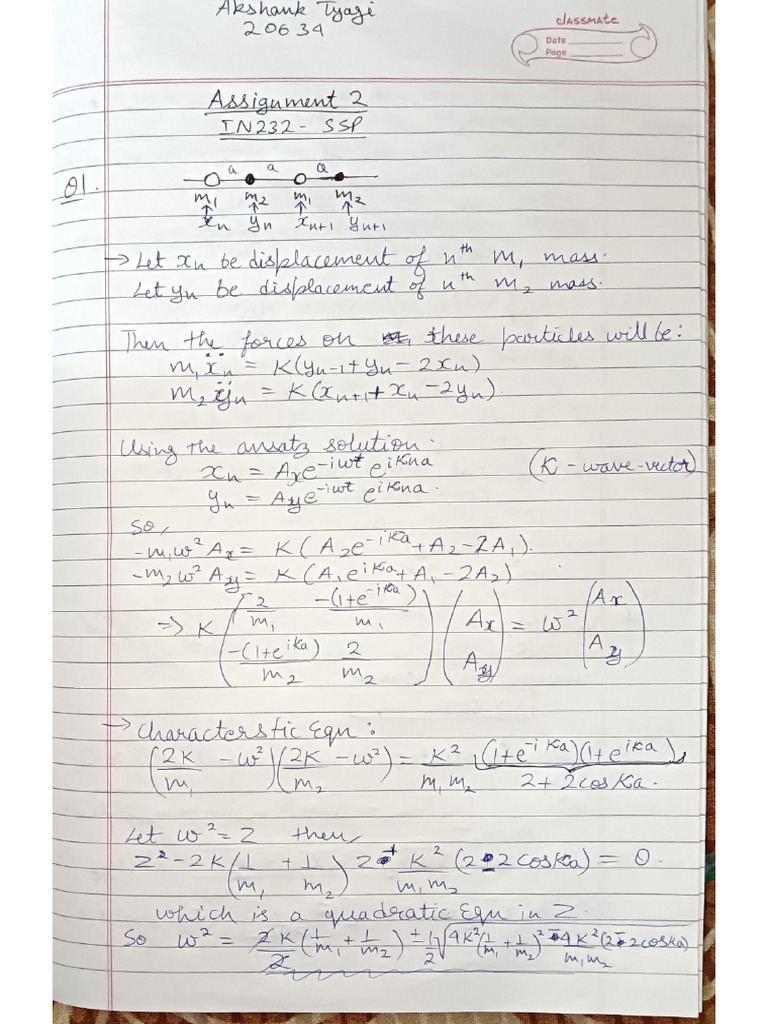 Akshank Tyagi
20634
classmate
Date
Page
Assignment 2
IN232 - SSP
Q1.
a a a
m₁ m₂ m₁ m₂
↑ ↑ ↑ ↑
xₙ yₙ xₙ₊₁ yₙ₊₁
→ Let xₙ be displacement of nᵗʰ m₁ mass.
Let yₙ be displacement of nᵗʰ m₂ mass.
Then the forces on these particles will be:
m₁ẍₙ = K(yₙ₋₁ + yₙ - 2xₙ)
m₂ÿₙ = K(xₙ₊₁ + xₙ - 2yₙ).
Using the ansatz solution.
xₙ = Aₓe^{-iωt} e^{iKna} (K - wave-vector)
yₙ = A_y e^{-iωt} e^{iKna}.
So,
-m₁ω² Aₓ = K(A₂e^{-iKa} + A₂ - 2A₁).
-m₂ω² A_y = K(A₁e^{iKa} + A₁ - 2A₂)
⇒ K ( 2/m₁ -(1+e^{-iKa})/m₁ ) ( Aₓ ) = ω² ( Aₓ )
( -(1+e^{iKa})/m₂ 2/m₂ ) ( A_y ) ( A_y )
→ Characterstic Eqn:
(2K/m₁ - ω²)(2K/m₂ - ω²) = K²/m₁m₂ (1+e^{-iKa})(1+e^{iKa})
2 + 2cosKa.
Let ω² = Z then,
Z² - 2K(1/m₁ + 1/m₂) Z + K²/m₁m₂ (2 - 2cosKa) = 0.
which is a quadratic Eqn in Z.
So ω² = 2K/2 (1/m₁ + 1/m₂) ± 1/2 √(4K²(1/m₁ + 1/m₂)² - 4K²/m₁m₂ (2 - 2cosKa))